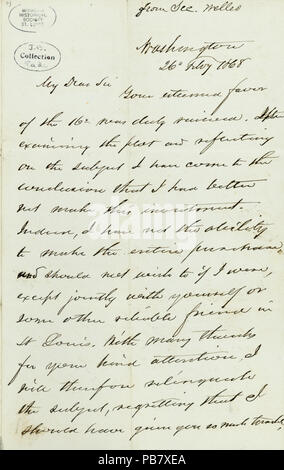 MISSOURI
HISTORICAL
SOCIETY
ST. LOUIS
Collection
from Sec. Welles
Washington
26th Feby 1868
My Dear Sir
Your esteemed favor
of the 16th was duly received. After
examining the plat and reflecting
on the subject I have come to the
conclusion that I had better
not make this investment.
Indeed, I have not the ability
to make the entire purchase,
and should not wish to if I were,
except jointly with yourself or
some other reliable friend in
St Louis. With many thanks
for your kind attention, I
will therefore relinquish
the subject, regretting that I
should have given you so much trouble,
alamy
alamy
Image ID: PB7XEA
www.alamy.com